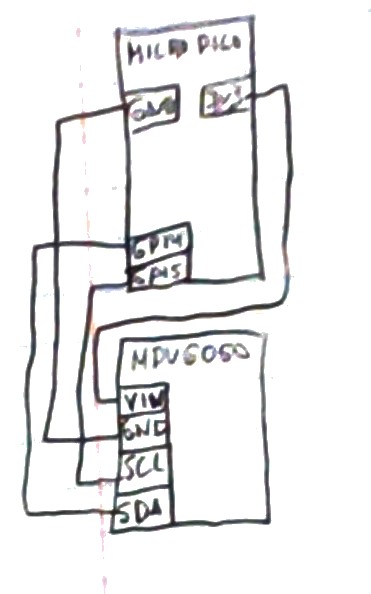 MICRO PICO
GND 3V3
GP14
GP15
MPU6050
VIN
GND
SCL
SDA